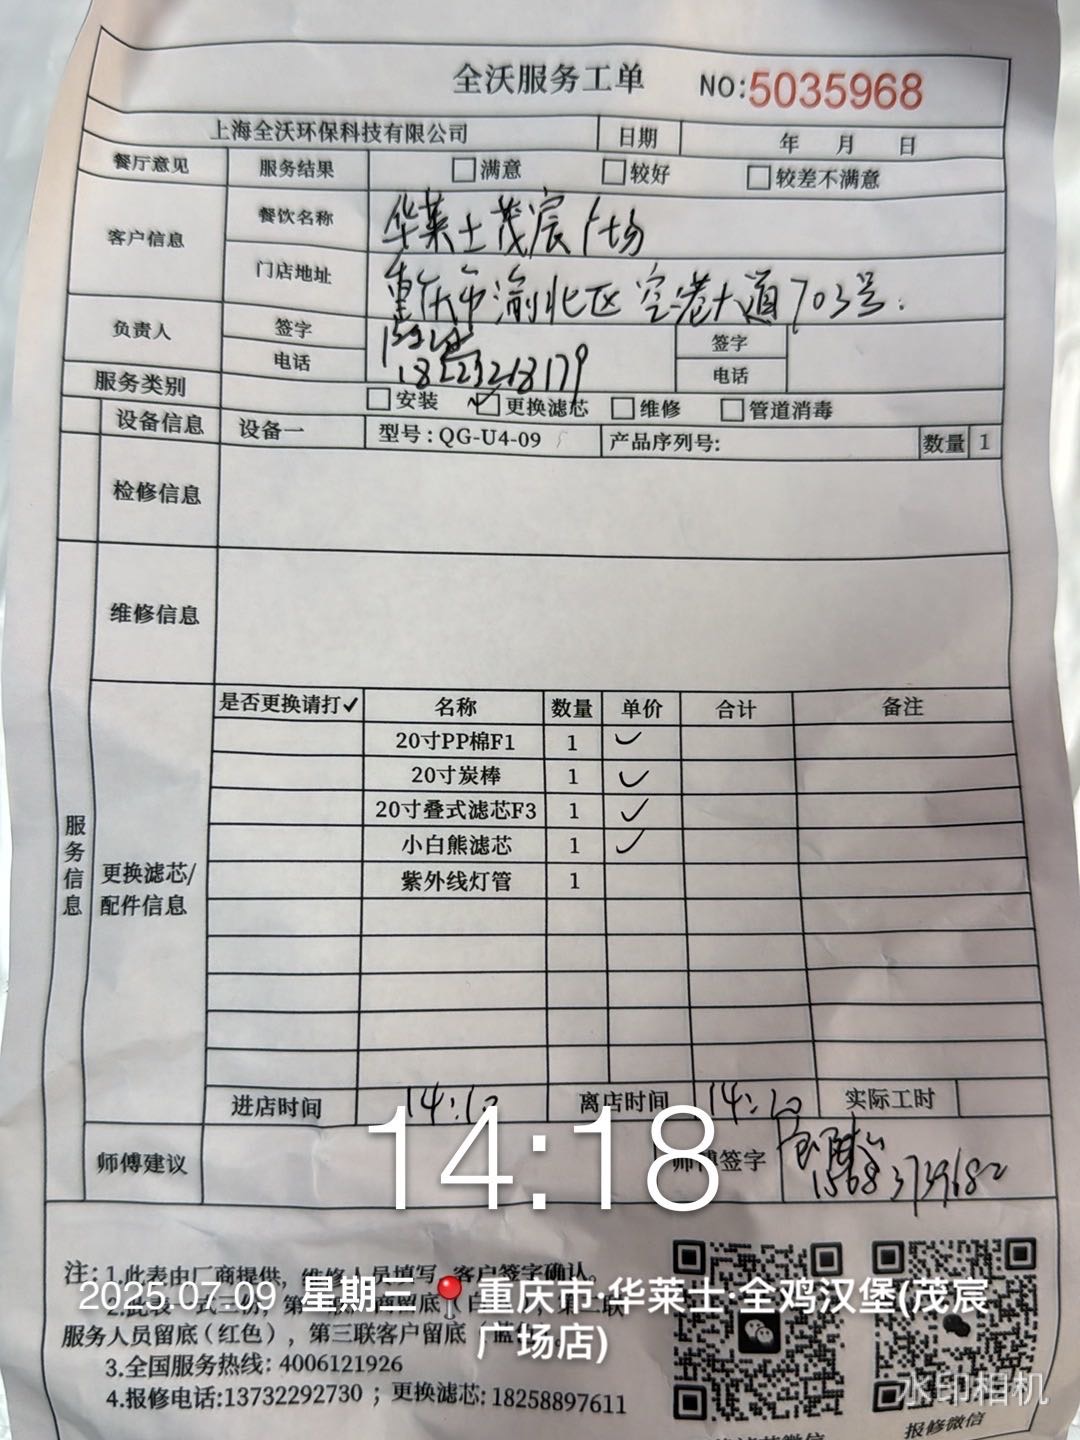 全沃服务工单 NO:5035968
上海全沃环保科技有限公司 日期 年 月 日
餐厅意见 服务结果 满意 较好 较差不满意
客户信息 餐饮名称 华莱士茂宸广场
门店地址 重庆市渝北区空港大道703号.
负责人 签字 签字
电话 电话
服务类别 安装 更换滤芯 维修 管道消毒
设备信息 设备一 型号:QG-U4-09 产品序列号: 数量 1
检修信息
维修信息
服务信息
更换滤芯/
配件信息
是否更换请打✓ 名称 数量 单价 合计 备注
20寸PP棉F1 1 ✓
20寸炭棒 1 ✓
20寸叠式滤芯F3 1 ✓
小白熊滤芯 1 ✓
紫外线灯管 1
进店时间 离店时间 实际工时
14:18
师傅建议 师傅签字
注: 1.此表由厂商提供,维修人员填写,客户签字确认。
2025.07.09 星期三 重庆市·华莱士·全鸡汉堡(茂宸
广场店)
服务人员留底(红色),第三联客户留底
3.全国服务热线: 4006121926
4.报修电话:13732292730 ; 更换滤芯: 18258897611
报修微信
水印相机